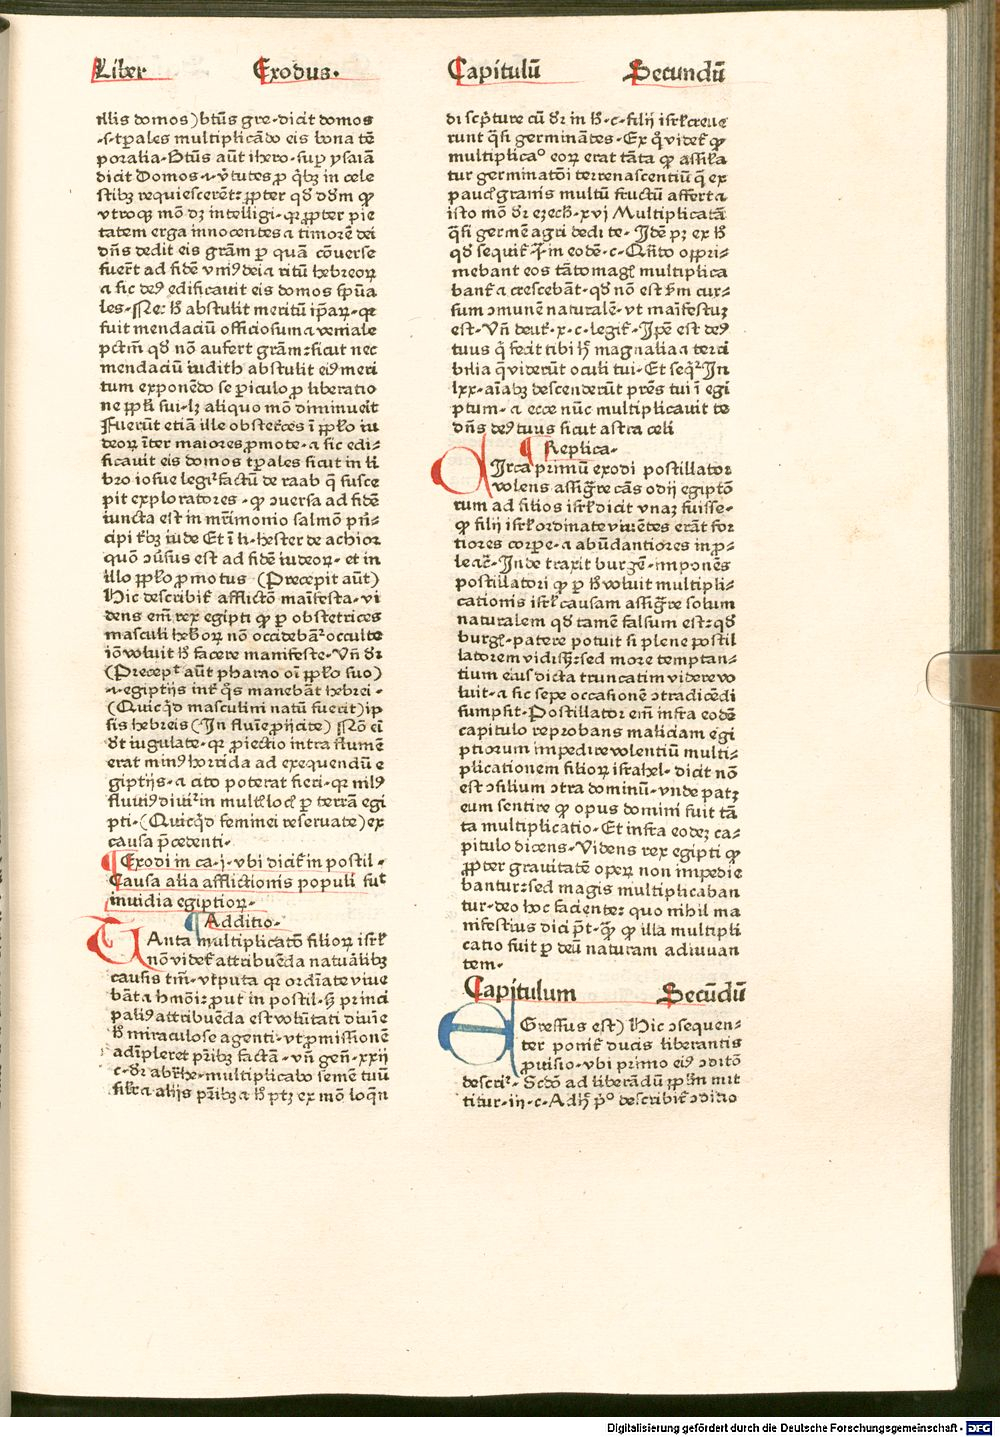 Liber Exodus.
Capitulū Secundū
illis domos) btūs gre· dicit domos
·s·tpales multiplicādo eis bona tē
poralia· Btūs aūt ihero· sup ysaiā
dicit Domos· ⁊ v̄tutes p̄ q̄bꝫ in cele
stibꝫ requiescerēt: ꝓpter qd̄ dd̄m ꝙ
vtroqꝫ mō dꝫ intelligi· qꝛ ꝓpter pie
tatem erga innocentes ⁊ timorē dei
dn̄s dedit eis grām ꝑ quā cōuerse
fuer̄t ad fidē vniꝰ dei ⁊ ritū hebreoꝝ
⁊ sic deꝰ edificauit eis domos spūa
les· Nec h̄ abstulit meritū ipaꝝ· qꝛ
fuit mendaciū officiosum ⁊ veniale
pctm̄ qd̄ nō aufert grām: sicut nec
mendaciū iudith abstulit eiꝰ meri
tum exponēdo se piculo ꝓ liberatio
ne ppl̄i sui· lꝫ aliquo mō diminueit
Fuerūt etiā ille obstet̄ces ī ppl̄o iu
deoꝝ īter maiores ꝓmote· ⁊ sic edi⸗
ficauit eis domos tpales sicut in li
bro iosue legit̄ factū de raab q̄ susce
pit exploratores· ꝙ ɔuersa ad fidē
iuncta est in mr̄imonio salmō pn̄⸗
cipi t̄bꝫ iude Et ī li· hester de achior
quō ɔūsus est ad fidē iudeoꝝ· et in
illo ppl̄o ꝓmotus (Precepit aūt)
Hic describit̄ afflictō māifesta· vi
dens em̄ rex egipti ꝙ ꝑ obstetrices
masculi heb̄oꝝ nō occidebāt̄ occulte
iō voluit h̄ facere manifeste· Vn̄ dr̄
(Precepᵗ aūt pharao oī ppl̄o suo)
·⁊·egiptijs int̄ q̄s manebāt hebrei·
(Quicq̄d masculini natū fuerit) ip
sis hebreis (In fluīe ꝓijcite) Nō eī
dt̄ iugulate· qꝛ ꝓiectio intra flumē
erat minꝰ horrida ad exequendū e
giptijs· ⁊ cito poterat fieri· qꝛ nilꝰ
fluuiꝰ diuit̄ in mult̄ locꝭ ꝑ terrā egi
pti· (Quicq̄d feminei reseruate) ex
causa p̄cedenti·
Exodi in ca· j· vbi dicit̄ in postil·
Causa alia afflictionis populi fuᵗ
inuidia egiptioꝝ·
Additio·
TAnta multiplicatō filioꝝ isrl̄
nō videt̄ attribuēda natuālibꝫ
causis tm̄· vtputa qꝛ ordīate viue
bāt ⁊ hmōi: put in postil· sꝫ princi
paliꝰ attribuēda est volūtati diuīe
h̄ miraculose agenti· vt ꝓmissionē
adīpleret pr̄ibꝫ factā· vn̄ gen̄· xxij
c· dr̄ abr̄he· multiplicabo semē tuū
sil̄r ⁊ alijs pr̄ibꝫ ⁊ h̄ ptꝫ ex mō loqn̄
di sc̄pture cū dr̄ in h̄·c· filij isrl̄ creue
runt q̄si germinātes· Ex q̄ videt̄ ꝙ
multiplicaᵒ eoꝝ erat tāta ꝙ assil̄a
tur germinatōi terrenascentiū q̄ ex
paucꝭ granis multū fructū affert ⁊
isto mō dr̄ ezech· xvj Multiplicatā
q̄si germē agri dedi te· Idē pꝫ ex h̄
qd̄ sequit̄ in eodē·c· Qn̄to oppri⸗
mebant eos tāto magꝭ multiplica
bant̄ ⁊ crescebāt· qd̄ nō est scdm̄ cur⸗
sum ɔmunē naturalē· vt māifestuꝫ
est· Vn̄ deut̄· x· c· legit̄· Ipe est deꝰ
tuus q̄ fecit tibi h̄ magnalia ⁊ terri
bilia q̄ viderūt oculi tui· Et seqᵗ In
lxx· aīabꝫ descenderūt pr̄es tui ī egi
ptum· ⁊ ecce nūc multiplicauit te
dn̄s deꝰ tuus sicut astra celi
Replica·
CIrca primū exodi postillator
volens assig̃re cās odij egiptō
rum ad filios isrl̄ dicit vnaꝫ fuisse·
ꝙ filij isrl̄ ordinate viuētes erāt for
tiores corpe· ⁊ abūdantiores in p⸗
le ⁊c̄· Inde traxit burgē· imponēs
postillatori ꝙ ꝑ h̄ voluit multipli⸗
cationis isrl̄ causam assig̃re solum
naturalem qd̄ tamē falsum est: qd̄
burgꝭ· patere potuit si plene postil
latorem vidissꝫ: sed more temptan⸗
tium eius dicta truncatim videre vo
luit· ⁊ sic sepe occasionē ɔtradicēdi
sumpsit· Postillator em̄ infra eodē
capitulo reprobans maliciam egi
ptiorum impedire volentiū multi⸗
plicationem filioꝝ israhel· dicit nō
est ɔsilium ɔtra dominū· vnde patꝫ
eum sentire ꝙ opus domini fuit tā
ta multiplicatio· Et infra eodeꝫ ca⸗
pitulo dicens· Videns rex egipti ꝙ
ꝓpter grauitatē operꝝ non impedie
bantur: sed magis multiplicaban
tur· deo hoc faciente: quo nihil ma
nifestius dici pt̄· qͣꝫ ꝙ illa multipli
catio fuit ꝑ deū naturam adiuuan
tem·
Capitulum Secūdū
EGressus est) Hic ɔsequen⸗
ter ponit̄ ducis liberantis
ꝓuisio· vbi primo eiꝰ ɔditō
describit̄· Scdō ad liberādū ppl̄m mit
titur· iij· c· Adhꝭ pᵒ describit̄ ɔditio
Digitalisierung gefördert durch die Deutsche Forschungsgemeinschaft - DFG